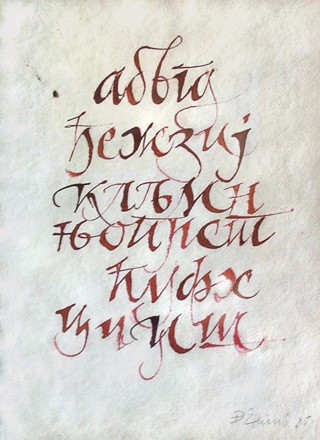 абвгд
ђежзиј
клљмн
њопрст
ћуфх
цчџш